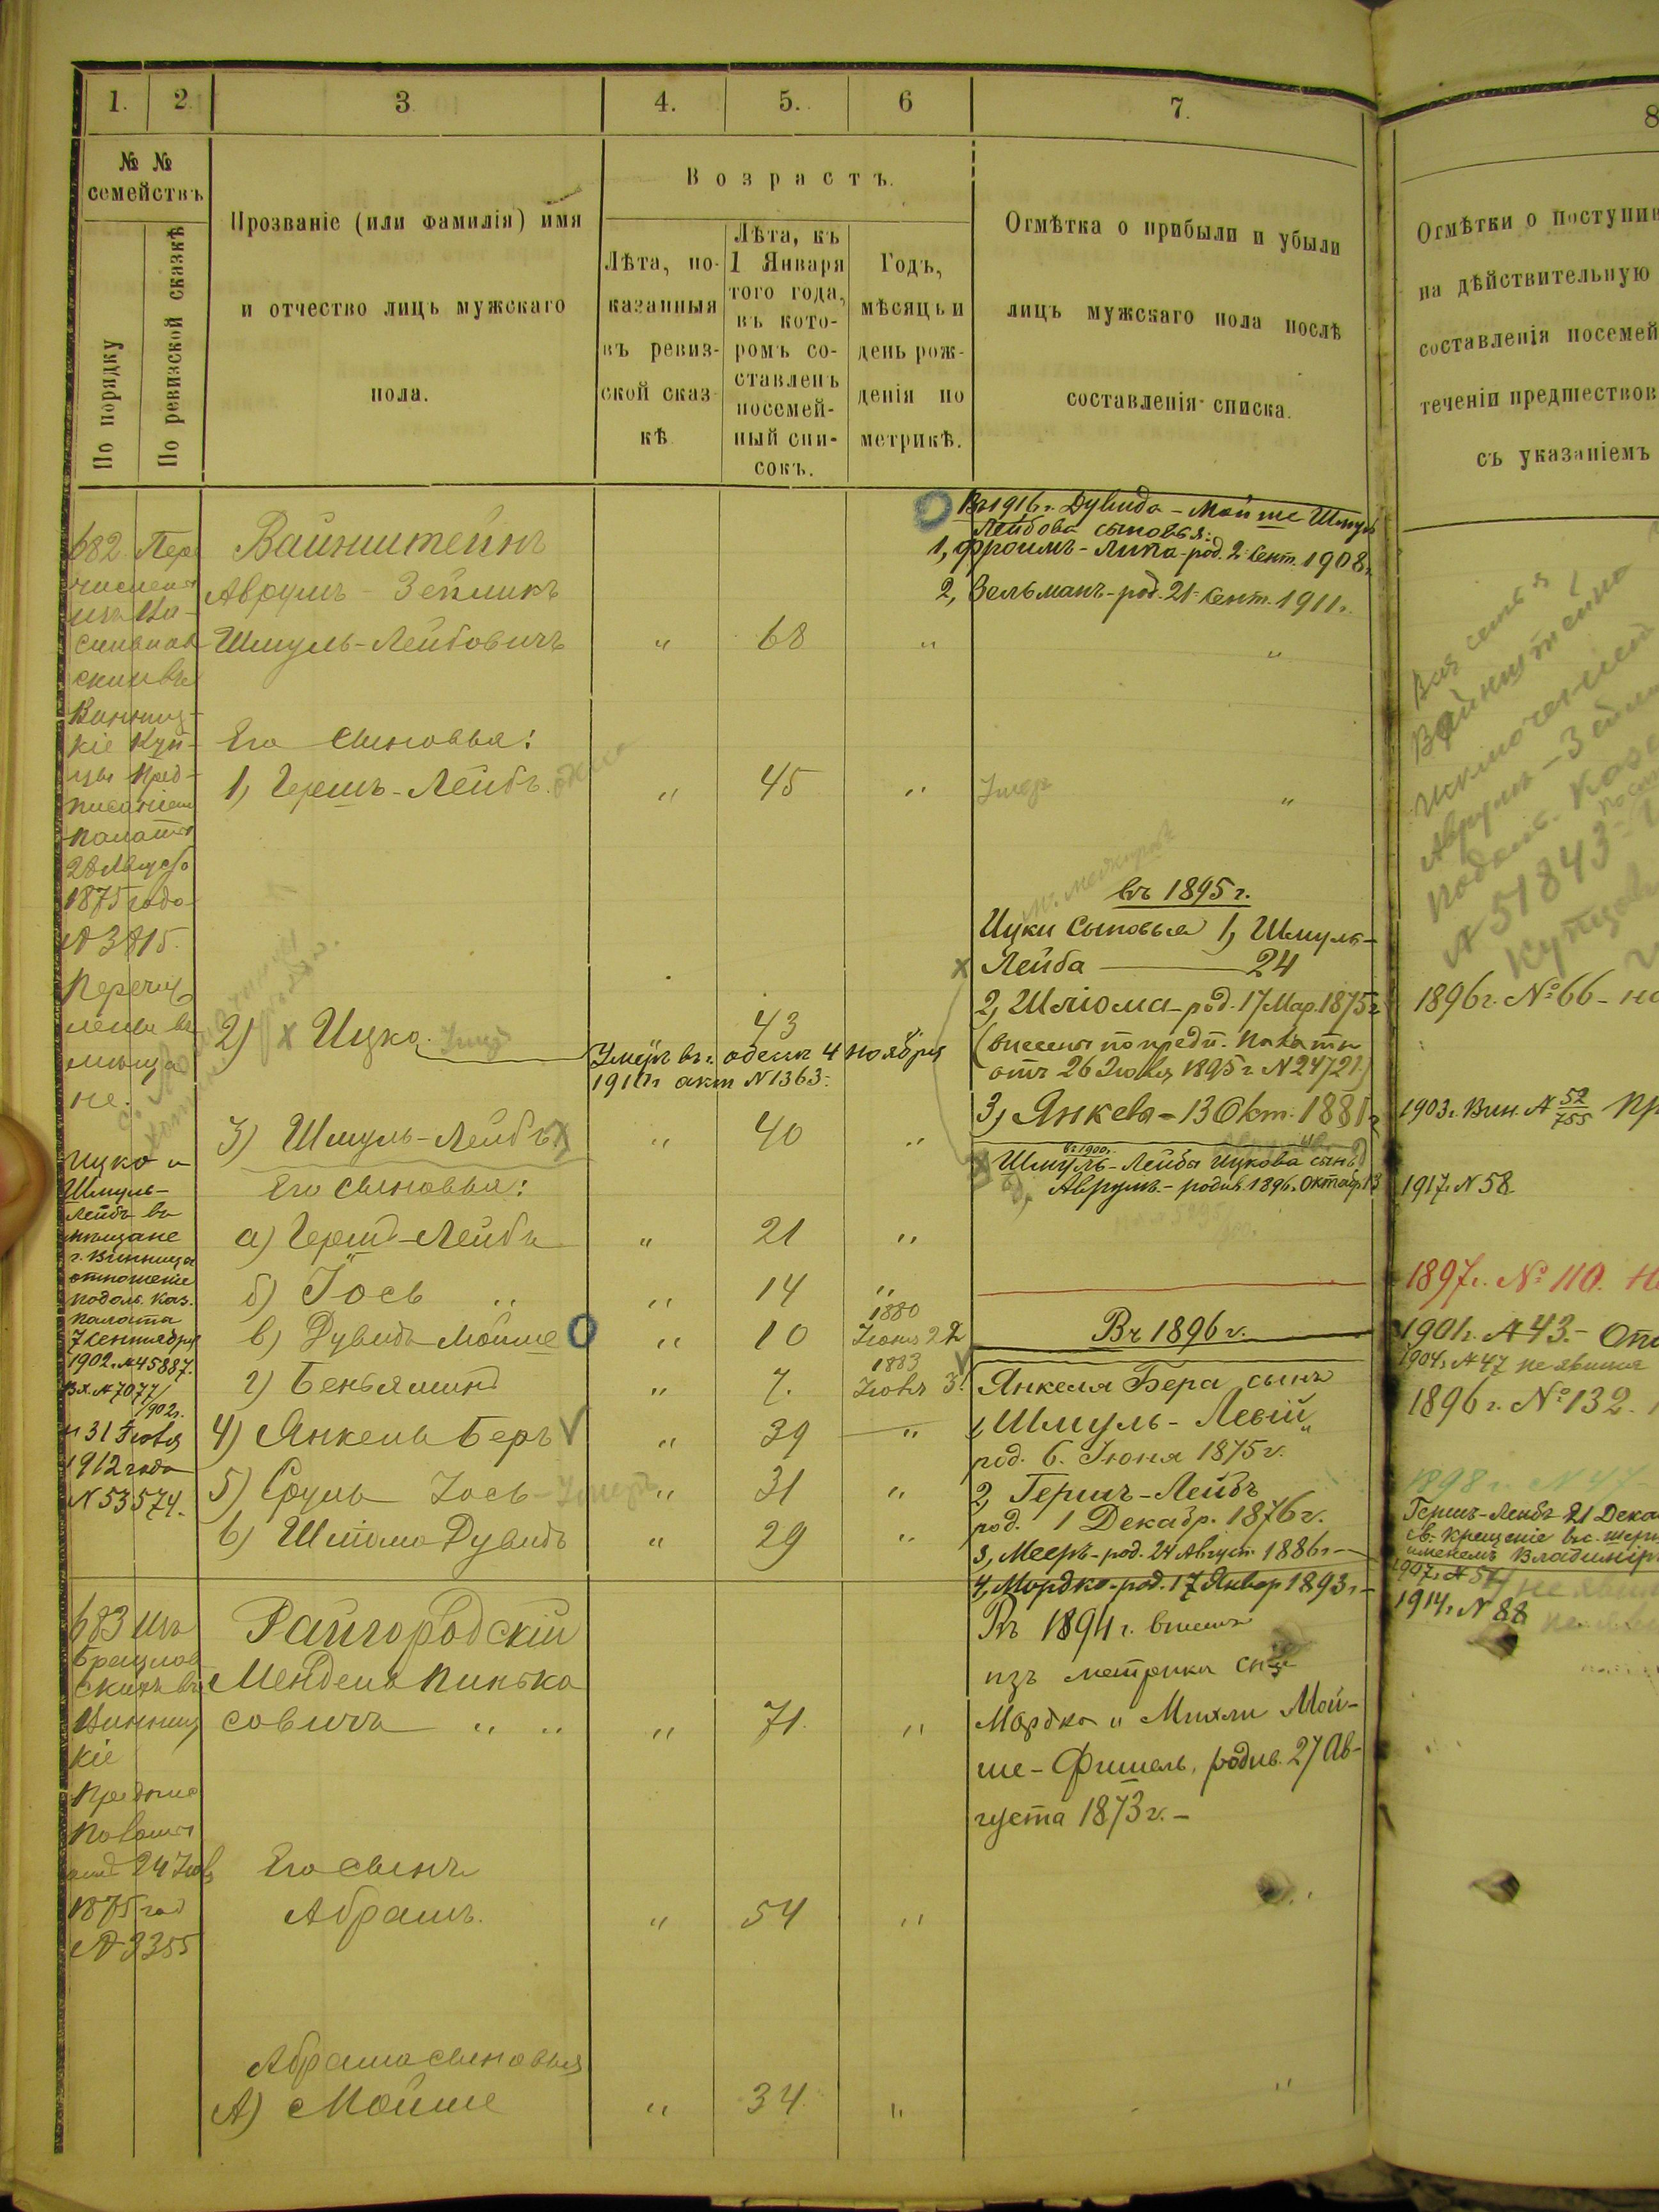 1. 2. 3 4. 5. 6 7. 8
№ № семействъ
По порядку
По ревизской сказкѣ
Прозваніе (или фамилія) имя
и отчество лицъ мужскаго
пола.
Возрастъ.
Лѣта, по-
казанныя
въ ревиз-
ской сказ-
кѣ
Лѣта, къ
1 Января
того года,
въ кото-
ромъ со-
ставленъ
посемей-
ный спи-
сокъ.
Годъ,
мѣсяцъ и
день рож-
денія по
метрикѣ.
Отмѣтка о прибыли и убыли
лицъ мужскаго пола послѣ
составленія списка.
Отмѣтки о поступив
на дѣйствительную
составленія посемей
теченіи предшествов
съ указаніемъ
682 Пере
численъ
изъ
Винниц-
кіе Куп-
цы Пред-
писаніем
Палаты
28 Августа
1875 года
№ 3815.
Перечис
лены въ
мѣща
не.
Ицко и
Шмуль-
Лейбъ въ
мѣщане
г. Винница
отношеніе
подоль. каз.
палата
7 Сентября
1902 г. № 45887.
Вх. № 7077/
902 г.
и 31 Іюля
1912 года
№ 53574.
Вайнштейнъ
Аврумъ - Зейликъ
Шмуль-Лейбовичъ " 68 " "
Его сыновья:
1, Гершъ-Лейбъ. " 45 " Умеръ "
2) х Ицко. Умеръ 43
Умеръ въ г. Одессѣ 4 ноября
191 г. актъ № 1363.
3) Шмуль-Лейбъ х " 40 "
Его сыновья:
а) Гершъ-Лейбъ " 21 "
б) Іось " " 14 "
в) Дувидъ Мойше " 10 1880 Іюня 22
г) Беньяминъ " 7. 1883 Іюля 3.
4) Янкель Беръ " 39 "
5) Сруль Іось - Умеръ " 31 "
6) Шлёма Дувидъ " 29 "
Въ 1916 г. Дувида-Мойше Шмуль
Лейбова сыновья:
1, Фроимъ-Липа-род. 2 Сент. 1908 г.
2, Зельманъ-род. 21 Сент. 1911 г.
въ 1895 г.
Ицки Сыновья 1, Шмуль-
х Лейба — 24
2, Шлiома-род. 17 Мар. 1875 г.
(внесены по предп. Палаты
отъ 26 Іюля 1895 г. № 24721)
3, Янкель-13 Окт. 1881 г.
Въ 1900 г.
Шмуль-Лейбы Ицкова сынъ
Аврумъ-родив. 1896 г. Октяб. 13
Въ 1896 г.
Янкеля Бера сынъ
1, Шмуль-Левій
род. 6. Іюня 1875 г.
2, Гершъ-Лейбъ
род. 1 Декабр. 1876 г.
3, Мееръ-род. 24 Август. 1886 г. —
4, Мордко-род. 17 Январ 1893 г. —
Вся семья
Вайнштейна
исключеніем
Аврумъ-Зейли
Подол. Казе
№ 51843
купцов
1896 г. № 66 - но
1903 г. Вин. № 52/755 пр
1917 г. № 58.
1897 г. № 110. Н
1901 г. № 43. - От
1904 г. № 47 не явился
1896 г. № 132.
1898 г. № 47
Гершъ-Лейбъ 21 Дека
св. крещеніе
именемъ Владиміръ
1907 г. № 54 не яви
1914 г. № 88
683 Изъ
Брацлав
скихъ въ
Винниц
кіе
Предпис
Палаты
отъ 24 Іюля
1875 год
№ 3355
Райгородскій
Мендель Пинька
совичъ " " " 71. "
Его сынъ
Абрамъ. " 54 "
Абрама сыновья
А) Мойше " 34 " "
Въ 1894 г. внесенъ
изъ метрики сынъ
Мордка и Михли Мой-
ше-Фишель, родив. 27 Ав-
густа 1873 г. -